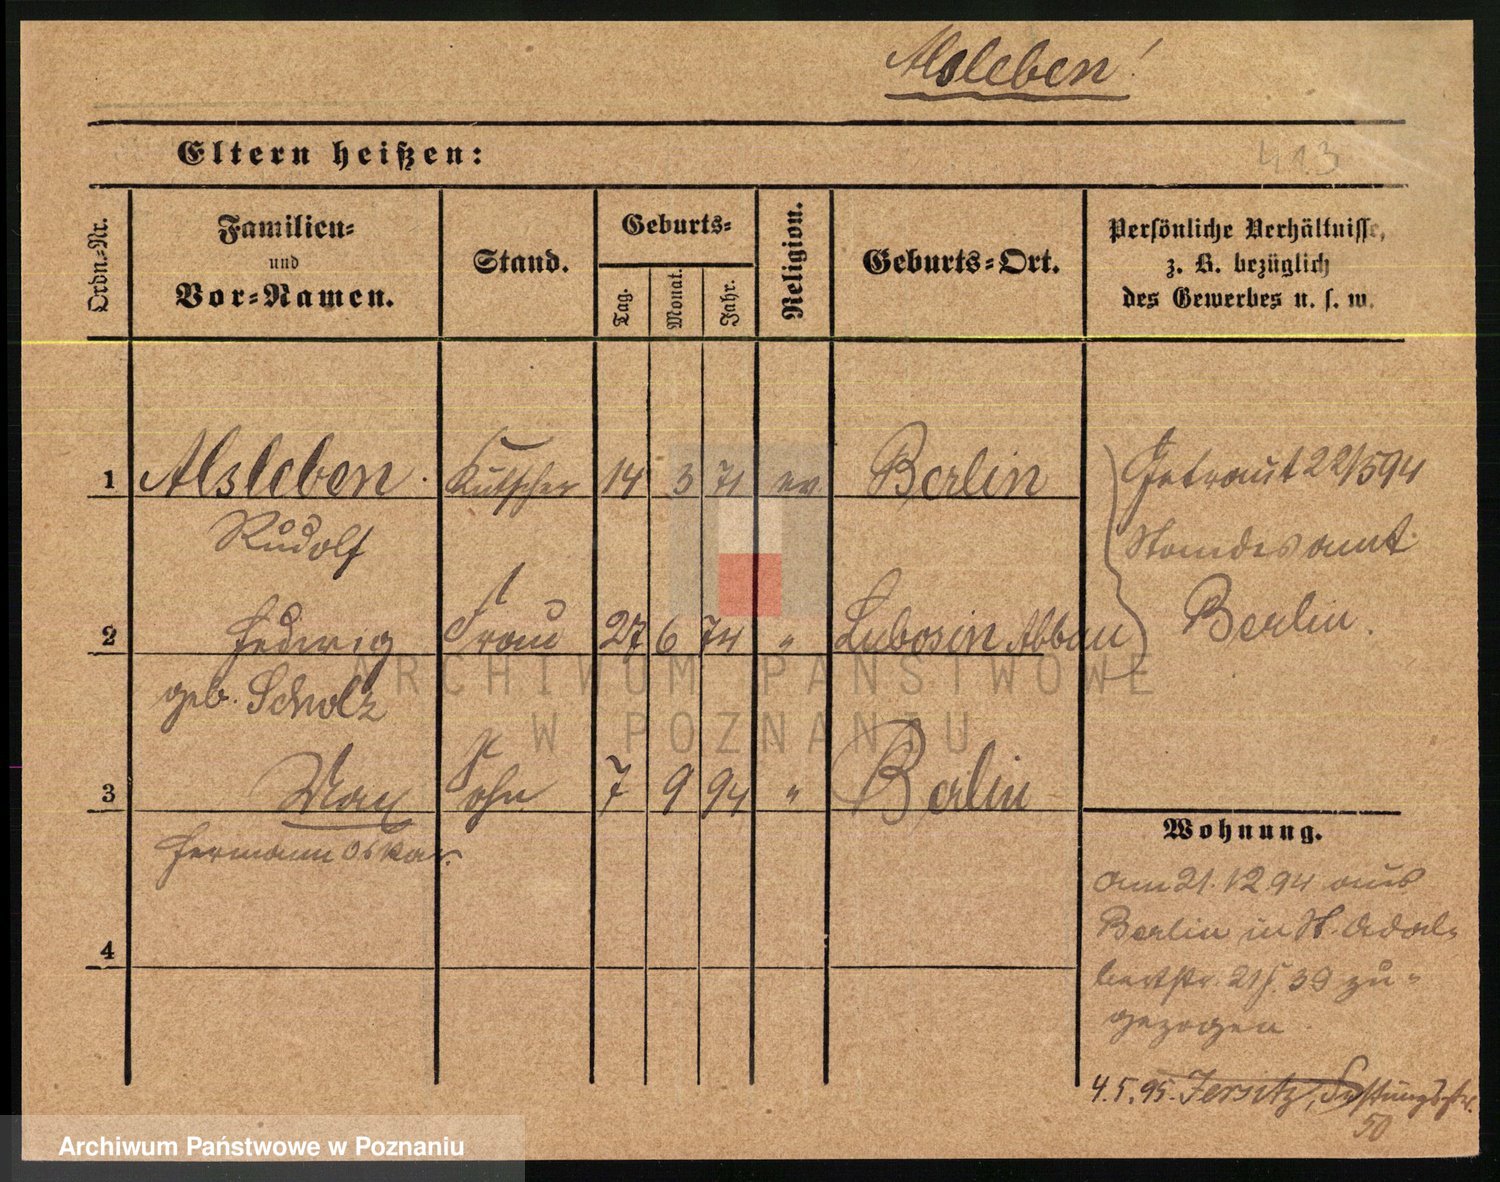 Alsleben!
Eltern heißen:
413
Ordn=Nr.
Familien=
und
Vor=Namen.
Stand.
Geburts=
Tag.
Monat.
Jahr.
Religion.
Geburts=Ort.
Persönliche Verhältnisse,
z. B. bezüglich
des Gewerbes u. s. w.
1 Alsleben. Kutscher 14 3 71 ev Berlin
Rudolf
2 Hedwig Frau 27 6 74 " Lubosin Abbau
geb. Scholz
3 Max Sohn 7 9 94 " Berlin
Hermann Oskar.
4
Getraut 22/5 94
Standesamt
Berlin.
Wohnung.
am 21.12 94 aus
Berlin in St. Adal=
bertstr. 39 zu=
gezogen
4.5.95. Jersitz, Festungsstr.
50
ARCHIWUM PAŃSTWOWE
W POZNANIU
Archiwum Państwowe w Poznaniu